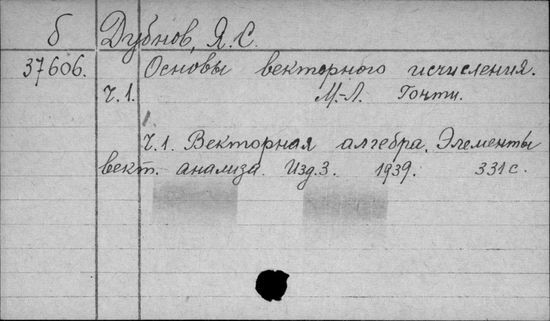 б Дубнов, Я.С.
37606. Основы векторного исчисления.
ч.1. М.-Л. Гонти.
ч.1. Векторная алгебра. Элементы
вект. анализа. Изд.3. 1939. 331с.